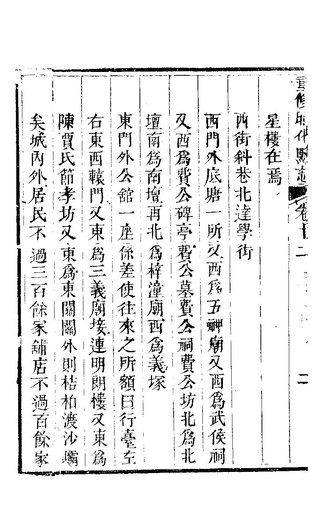 重修昭化縣志
星樓在焉
西街斜巷北達學街
西門外底塘一所又西爲五神廟又西爲武侯祠
又西爲費公碑亭費公墓費公祠費公坊北爲北
壇南爲南壇再北爲梓潼廟西爲義塚
東門外公館一座係差使往來之所額曰行臺左
右東西轅門又東爲三義廟接連明朗樓又東爲
陳賈氏節孝坊又東爲東關關外則桔柏渡沙壩
矣城內外居民不過三百餘家舖店不過百餘家